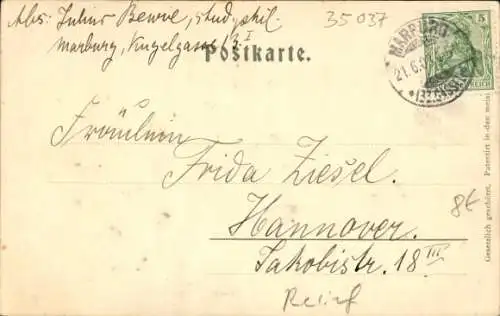 Abs: Julius Bewre, stud. phil.
35037
Marburg, Kugelgasse 2 I
Postkarte.
MARBURG
21.6.
*(BZ.CASSEL)*
5
REICH
Fräulein
Frida Ziesel.
Hannover.
Jakobistr. 18 III
8€
Relief
Gesetzlich geschützt. Patentirt in den meist.